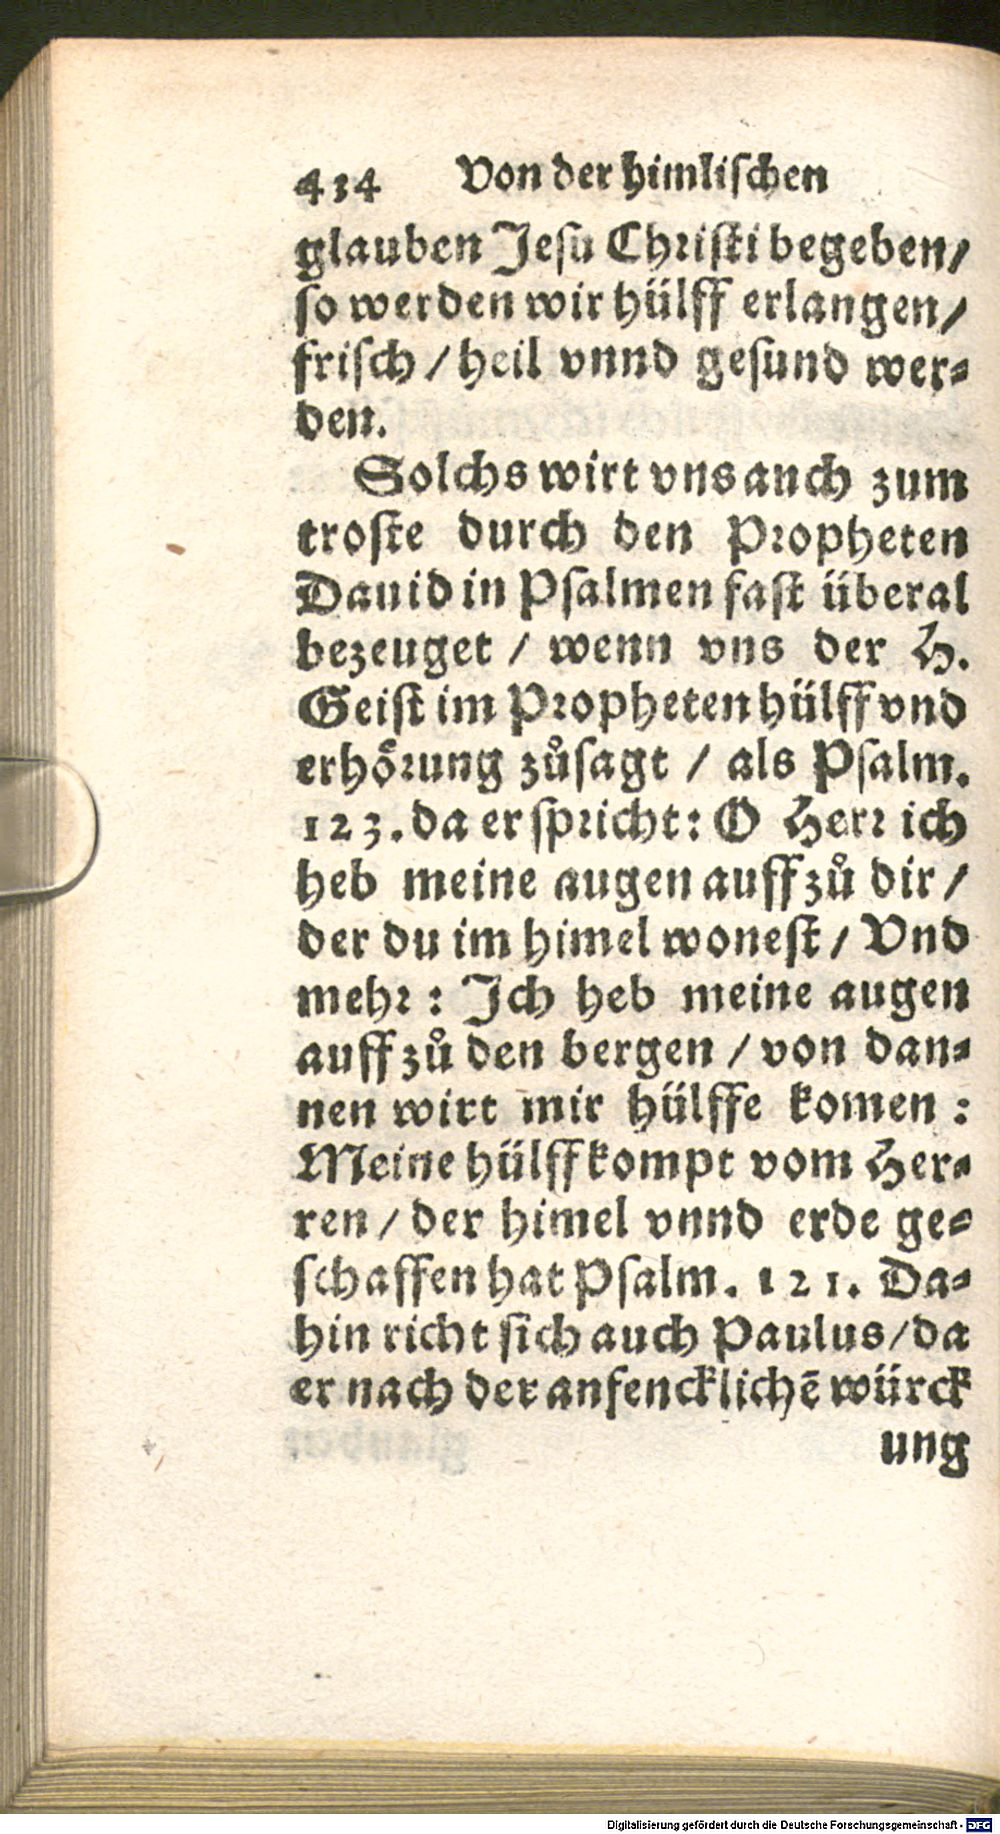 434 Von der himlischen
glauben Jesu Christi begeben/
so werden wir hülff erlangen/
frisch / heil vnnd gesund wer⸗
den.
Solchs wirt vns auch zum
troste durch den Propheten
Dauid in Psalmen fast überal
bezeuget / wenn vns der H.
Geist im Propheten hülff vnd
erhoͤrung zůsagt / als Psalm.
123. da er spricht: O Herr ich
heb meine augen auff zů dir /
der du im himel wonest / Vnd
mehr : Ich heb meine augen
auff zů den bergen / von dan⸗
nen wirt mir hülffe komen :
Meine hülff kompt vom Her⸗
ren / der himel vnnd erde ge⸗
schaffen hat Psalm. 121. Da⸗
hin richt sich auch Paulus / da
er nach der anfencklichē würck
ung
Digitalisierung gefördert durch die Deutsche Forschungsgemeinschaft - DFG